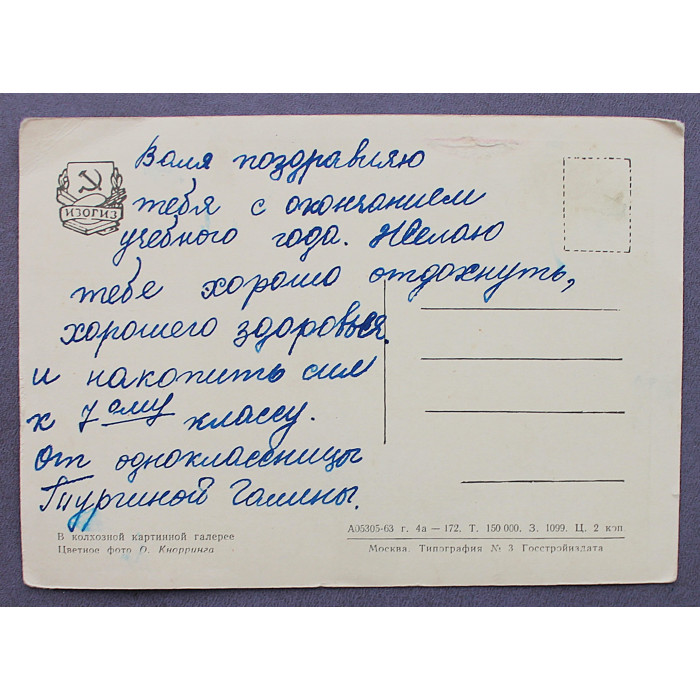 ИЗОГИЗ
Валя поздравляю
тебя с окончанием
учебного года. Желаю
тебе хорошо отдохнуть,
хорошего здоровья.
и накопить сил
к 7ому классу.
От одноклассницы
Тургиной Галины.
В колхозной картинной галерее
Цветное фото О. Кнорринга
А05305-63 г. 4а — 172. Т. 150 000. З. 1099. Ц. 2 коп.
Москва. Типография № 3 Госстройиздата